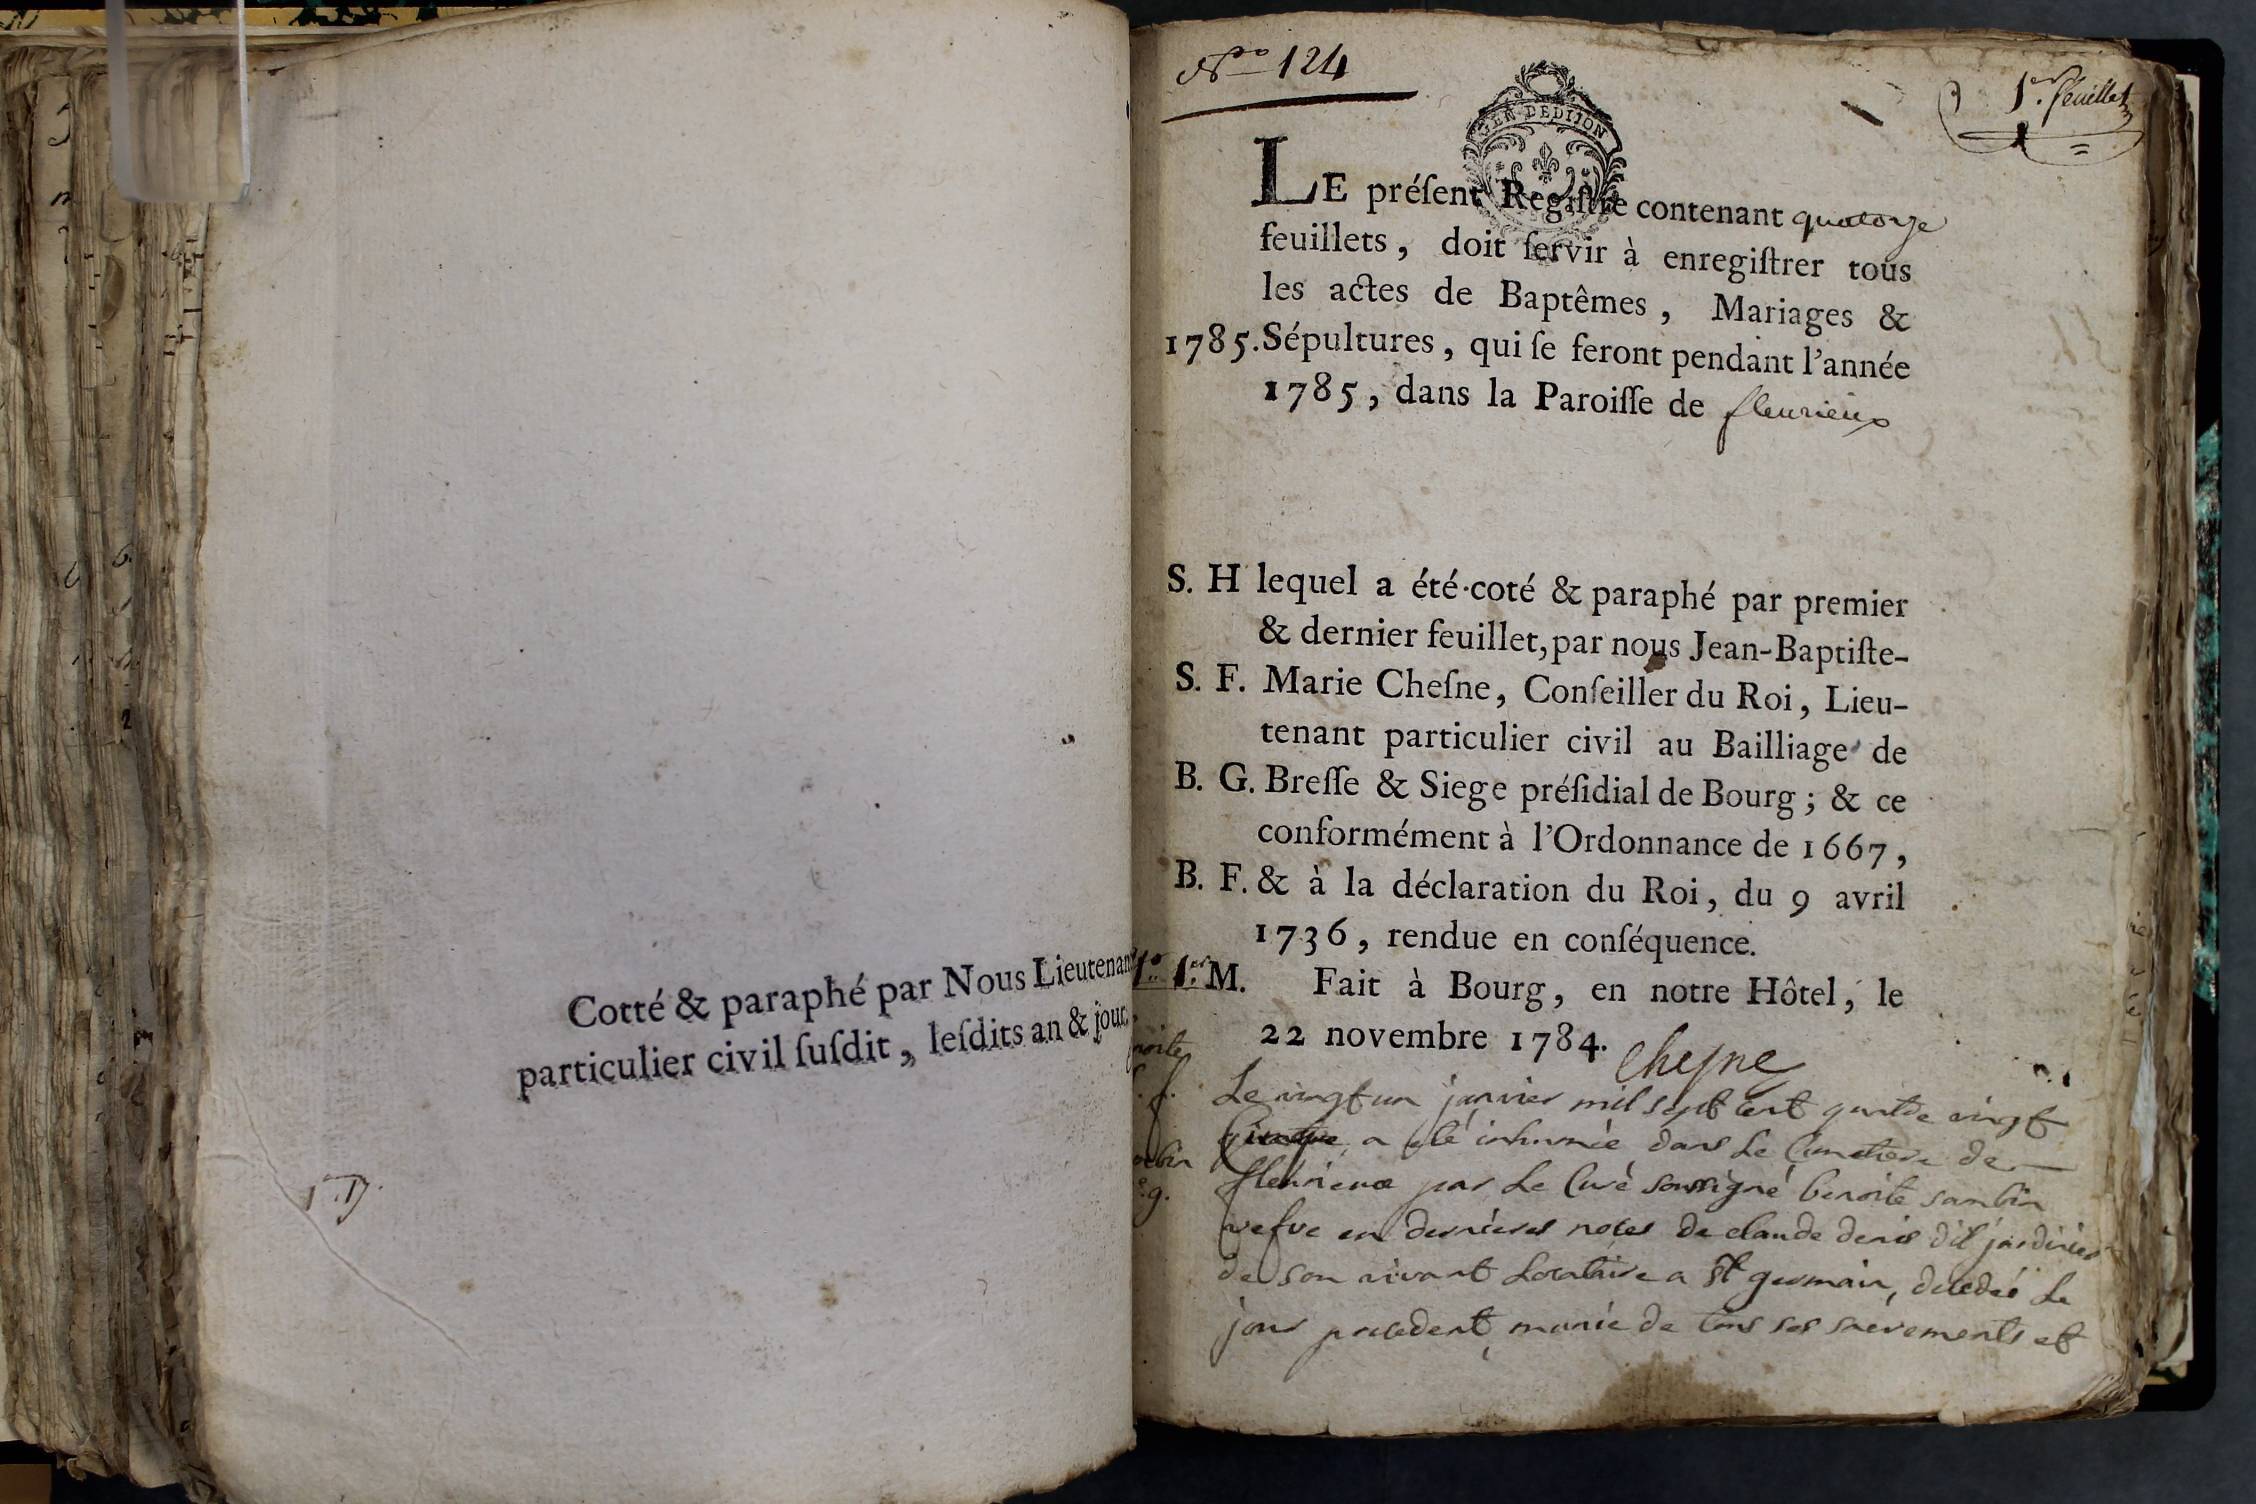 Cotté & paraphé par Nous Lieutenant
particulier civil ſuſdit, leſdits an & jour.
Nº 124
1er. feuillet
GEN DEDIJON
LE préſent Regiſtre contenant quatorze
feuillets, doit ſervir à enregiſtrer tous
les actes de Baptêmes, Mariages &
1785. Sépultures, qui ſe feront pendant l'année
1785, dans la Paroiſſe de fleurieux
S. H lequel a été coté & paraphé par premier
& dernier feuillet, par nous Jean-Baptiſte-
S. F. Marie Cheſne, Conſeiller du Roi, Lieu-
tenant particulier civil au Bailliage de
B. G. Breſſe & Siege préſidial de Bourg; & ce
conformément à l'Ordonnance de 1667,
B. F. & à la déclaration du Roi, du 9 avril
1736, rendue en conſéquence.
M. Fait à Bourg, en notre Hôtel, le
22 novembre 1784.
Chesne
Le vingt un janvier mil sept cent quatre vingt
cinque, a été inhumée dans le Cimetiere de
fleurieux par le Curé soussigné benoite sambin
vefve en dernieres noces de claude denis dit jardinier
de son vivant Locataire a St germain, decedée le
jour precedent, munie de tous ses sacrements et